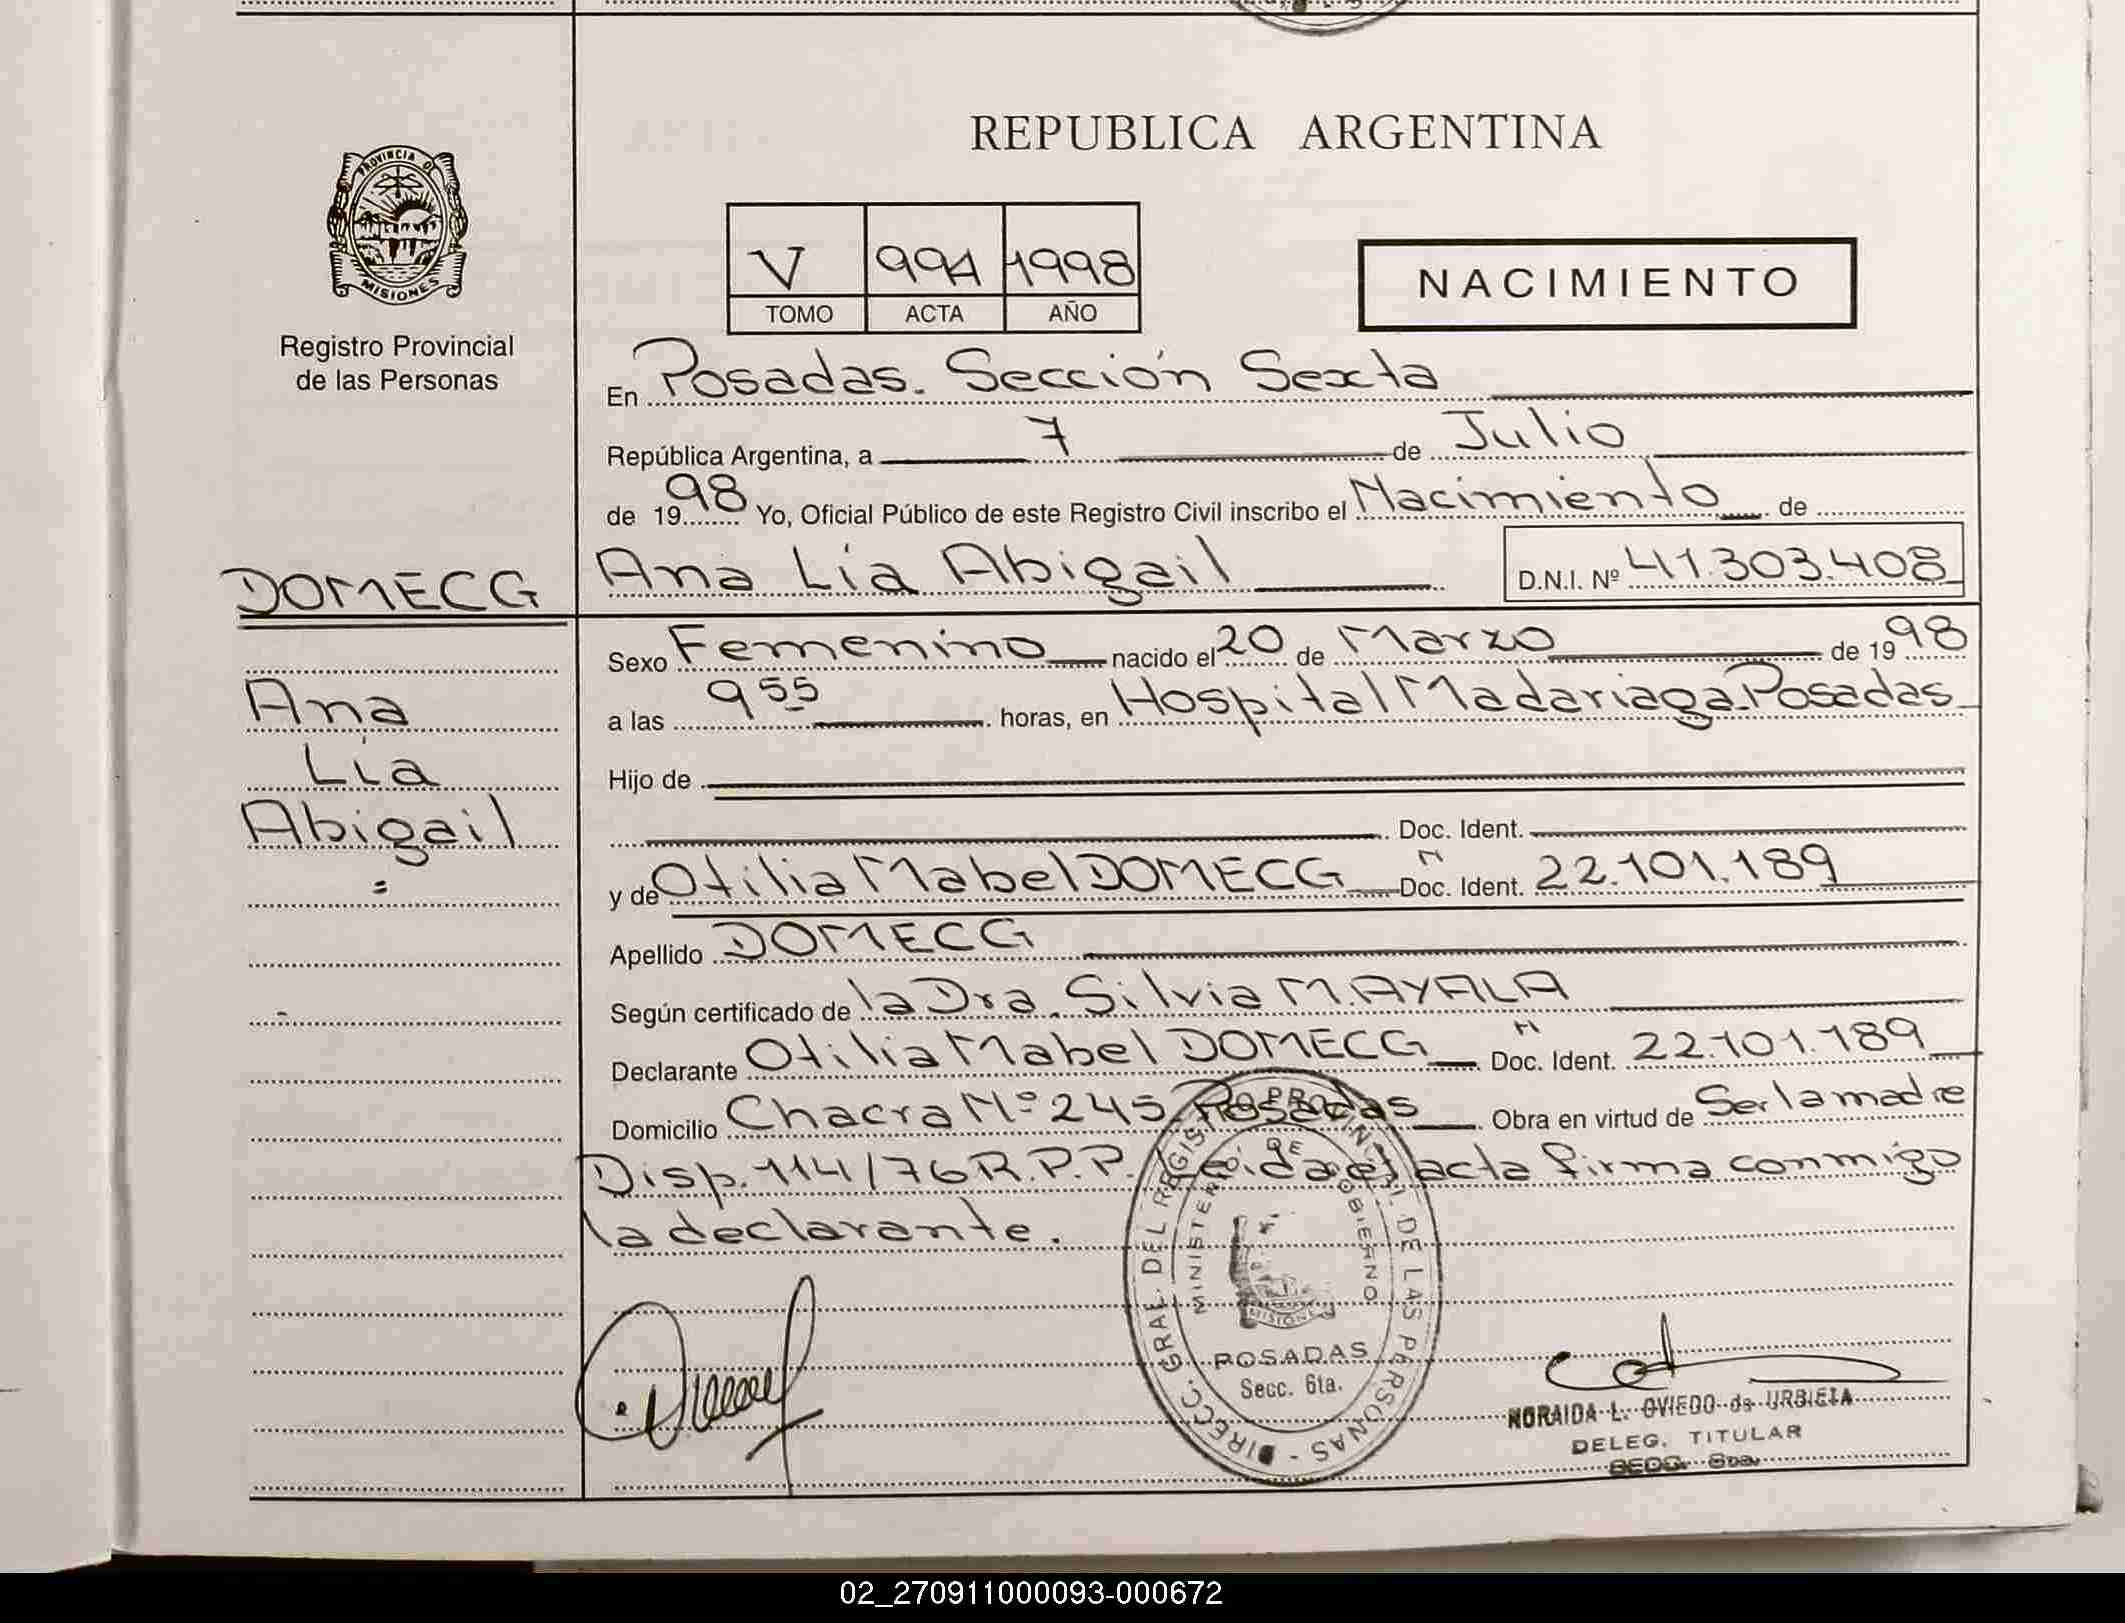 REPUBLICA ARGENTINA
PROVINCIA DE
MISIONES
Registro Provincial
de las Personas
V 994 1998
TOMO ACTA AÑO
NACIMIENTO
En Posadas. Sección Sexta
República Argentina, a 7 de Julio
de 1998 Yo, Oficial Público de este Registro Civil inscribo el Nacimiento de
DOMECG
Ana Lía Abigail D.N.I. Nº 41.303.408
Ana
Lía
Abigail
Sexo Femenino nacido el 20 de Marzo de 1998
a las 9 55 horas, en Hospital Madariaga. Posadas
Hijo de
Doc. Ident.
y de Otilia Mabel DOMECG Doc. Ident. 22.101.189
Apellido DOMECG
Según certificado de la Dra. Silvia M. AYALA
Declarante Otilia Mabel DOMECG Doc. Ident. 22.101.189
Domicilio Chacra Nº 245 Posadas Obra en virtud de Ser la madre
Disp. 114/76 R.P.P. Leída el acta firma conmigo
la declarante.
DIRECC. GRAL. DEL REGISTRO PROVINCIAL DE LAS PERSONAS
MINISTERIO DE GOBIERNO
MISIONES
POSADAS
Secc. 6ta.
NORAIDA L. OVIEDO de URBIETA
DELEG. TITULAR
SECC. 6ta.
02_270911000093-000672